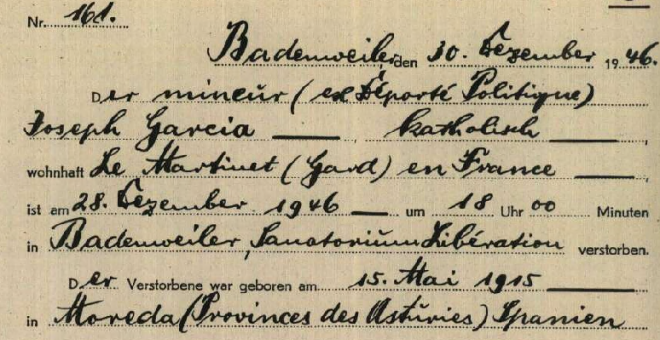 Nr. 161.
Badenweiler, den 30. Dezember 1946.
Der mineur (ex Déporté Politique)
Joseph Garcia , katholisch ,
wohnhaft Le Martinet (Gard) en France ,
ist am 28. Dezember 1946 um 18 Uhr 00 Minuten
in Badenweiler, Sanatorium Libération verstorben.
Der Verstorbene war geboren am 15. Mai 1915
in Moreda (Provinces des Asturies) Spanien